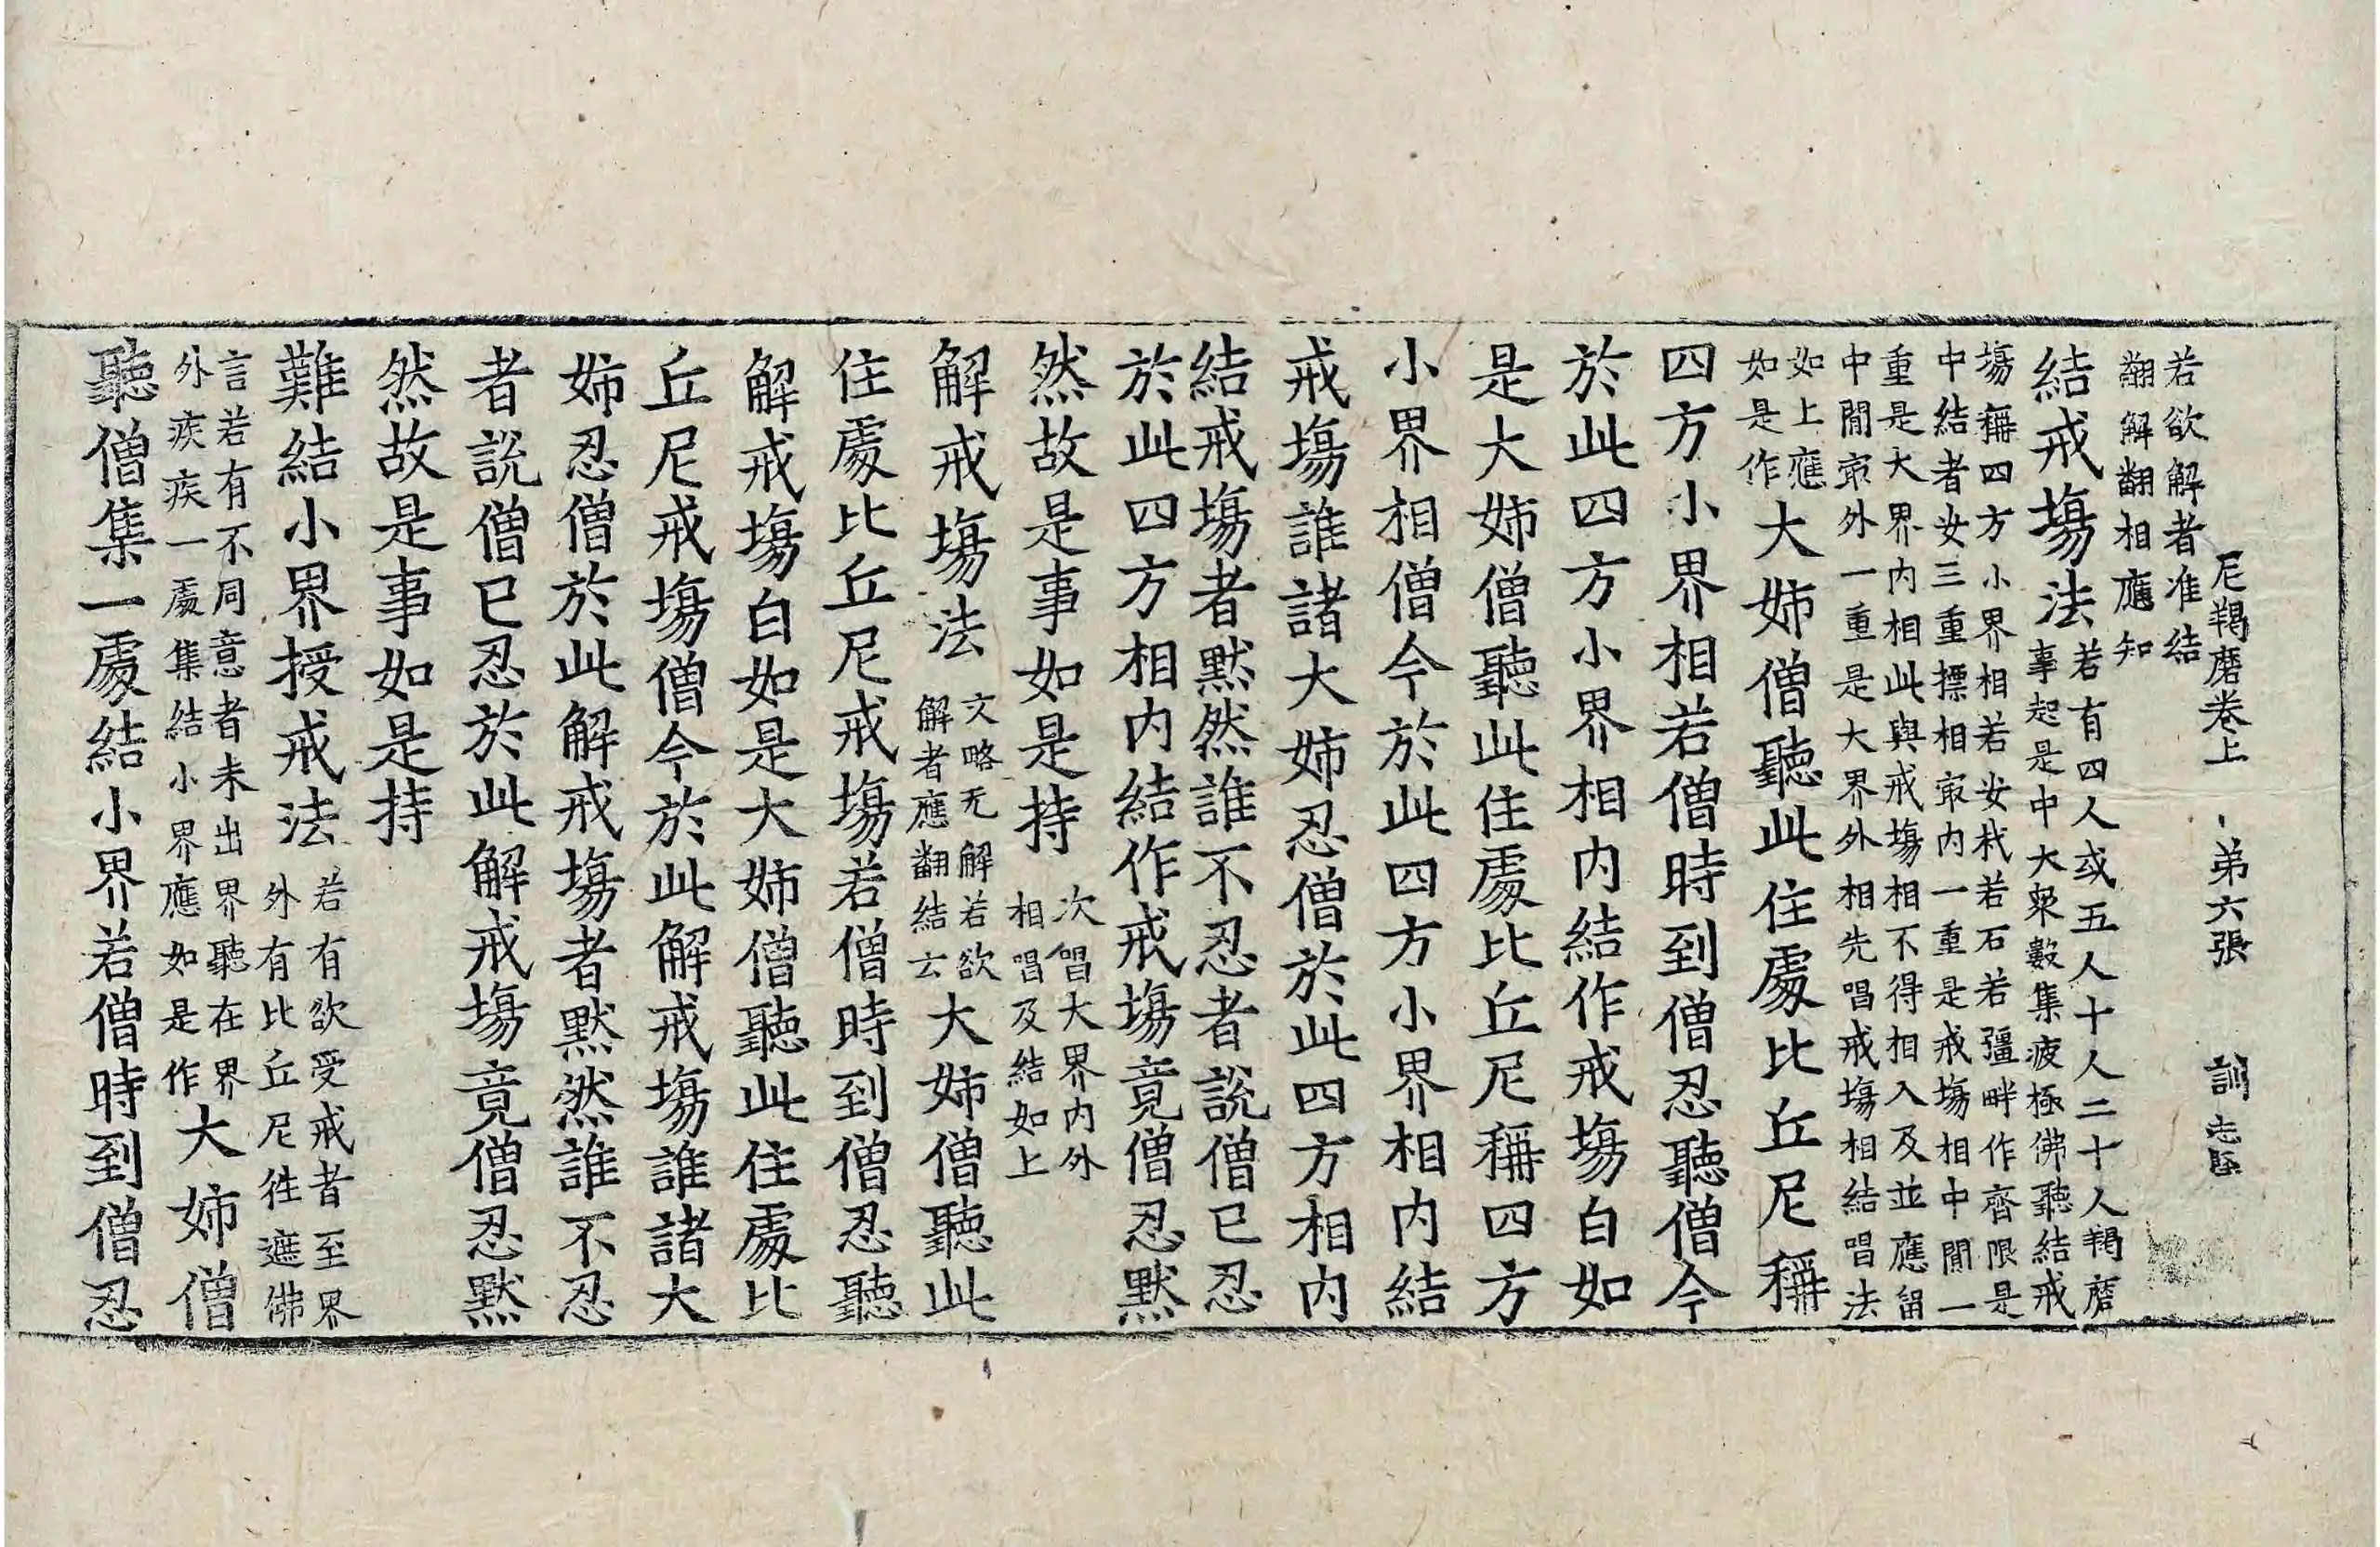 尼羯磨卷上 弟六張 訓 志堅
若欲解者准結
翻解翻相應知
結戒塲法
若有四人或五人十人二十人羯磨
事起是中大衆數集疲極佛聽結戒
塲稱四方小界相若安杙若石若彊畔作齊限是
中結者安三重摽相㝡內一重是戒塲相中間一
重是大界內相此與戒塲相不得相入及並應留
中間㝡外一重是大界外相先唱戒塲相結唱法
如上應
如是作
大姉僧聽此住處比丘尼稱
四方小界相若僧時到僧忍聽僧今
於此四方小界相內結作戒塲白如
是大姉僧聽此住處比丘尼稱四方
小界相僧今於此四方小界相內結
戒塲誰諸大姉忍僧於此四方相內
結戒塲者黙然誰不忍者說僧已忍
於此四方相內結作戒塲竟僧忍黙
然故是事如是持
次唱大界內外
相唱及結如上
解戒塲法
文略无解若欲
解者應翻結云
大姉僧聽此
住處比丘尼戒塲若僧時到僧忍聽
解戒塲白如是大姉僧聽此住處比
丘尼戒塲僧今於此解戒塲誰諸大
姉忍僧於此解戒塲者黙然誰不忍
者說僧已忍於此解戒塲竟僧忍黙
然故是事如是持
難結小界授戒法
若有欲受戒者至界
外有比丘尼徃遮佛
言若有不同意者未出界聽在界
外疾疾一處集結小界應如是作
大姉僧
聽僧集一處結小界若僧時到僧忍